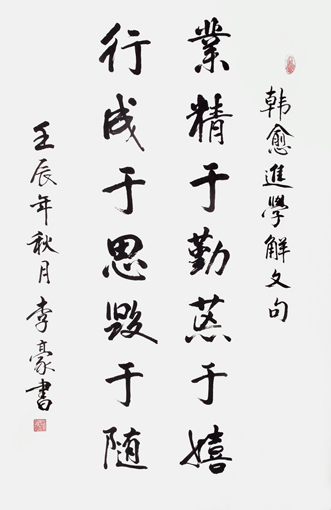 韩愈進學解文句
業精于勤荒于嬉
行成于思毁于随
壬辰年秋月李豪書